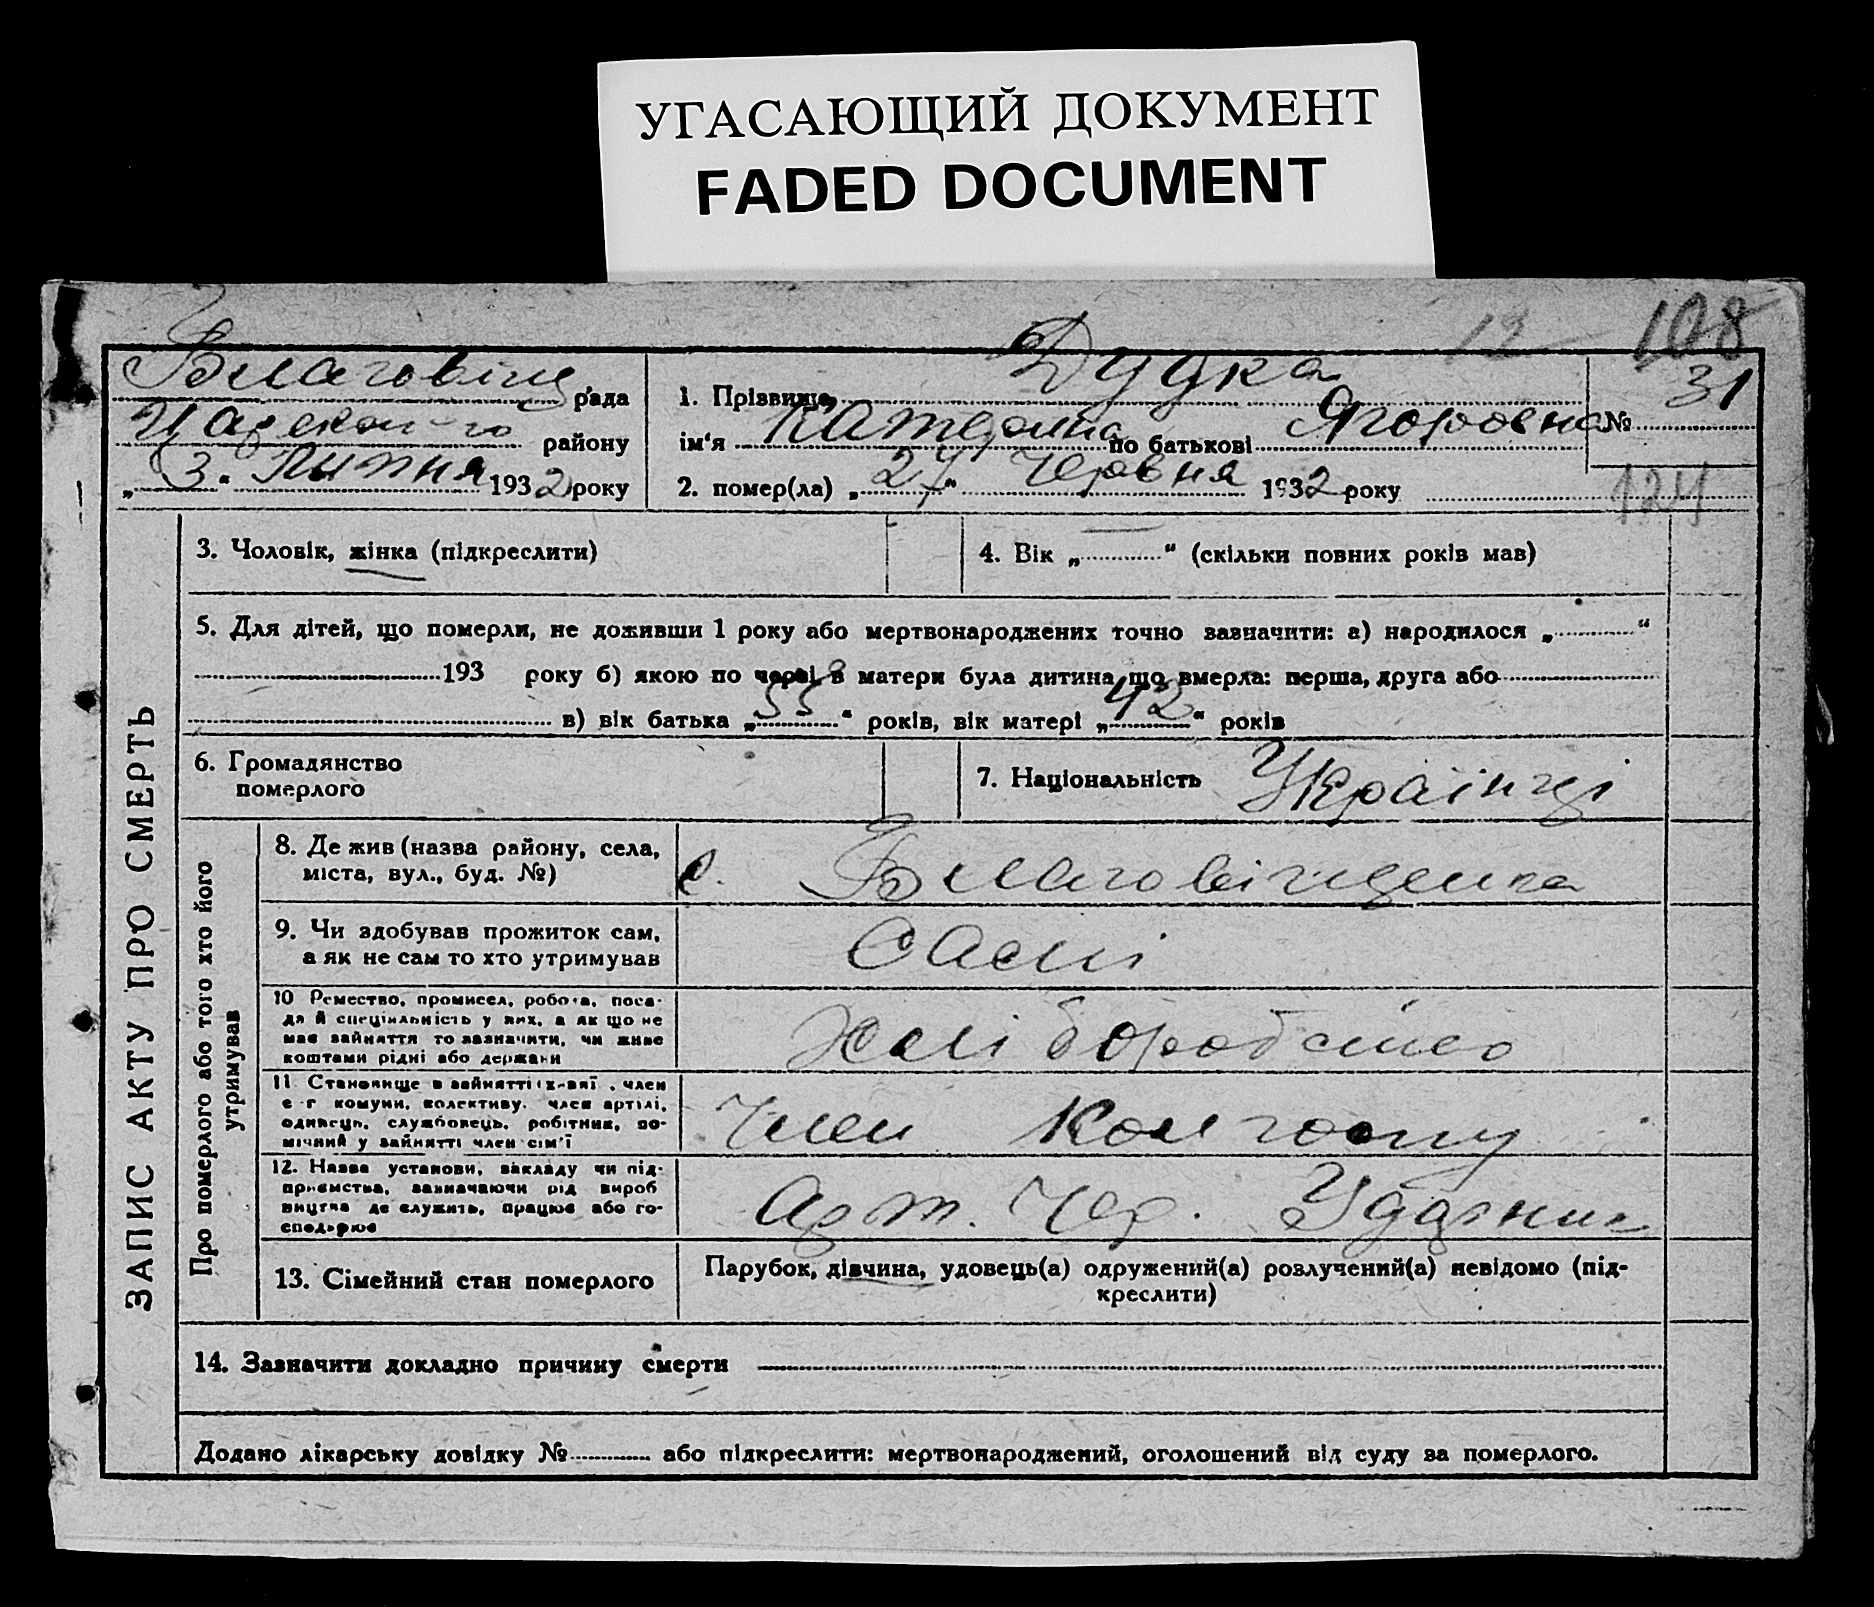 УГАСАЮЩИЙ ДОКУМЕНТ
FADED DOCUMENT
12 108
Благовіщ рада
Царекон-го району
„3“ Липня 1932 року
Дудка
1. Прізвище
ім'я Катерина по батькові Ягоровна № 31
2. помер(ла) „27“ Червня 1932 року
124
ЗАПИС АКТУ ПРО СМЕРТЬ
3. Чоловік, жінка (підкреслити)
4. Вік „ — “ (скільки повних років мав)
5. Для дітей, що померли, не доживши 1 року або мертвонароджених точно зазначити: а) народилося „ “
193 року б) якою по черзі в матери була дитина що вмерла: перша, друга або
в) вік батька „55“ років, вік матері „42“ років
6. Громадянство
померлого
7. Національність Українці
Про померлого або того хто його
утримував
8. Де жив (назва району, села,
міста, вул., буд. №)
с. Благовігщенка
9. Чи здобував прожиток сам,
а як не сам то хто утримував
Самі
10 Ремество, промисел, робота, поса-
да й спеціяльність у них, а як що не
має зайняття то зазначити, чи живе
коштами рідні або держави
Хліборобство
11 Становище в зайнятті член
с-г комуни, колективу, член артілі,
одинець, службовець, робітник, по-
мічний у зайнятті член сім'ї
Член Колгоспу
12. Назва установи, закладу чи під-
приємства, зазначаючи рід вироб
ництва де служить, працює або го-
сподарює
Арт. Чер. Ударник
13. Сімейний стан померлого
Парубок, дівчина, удовець(а) одружений(а) розлучений(а) невідомо (під-
креслити)
14. Зазначити докладно причину смерти
Додано лікарську довідку № або підкреслити: мертвонароджений, оголошений від суду за померлого.